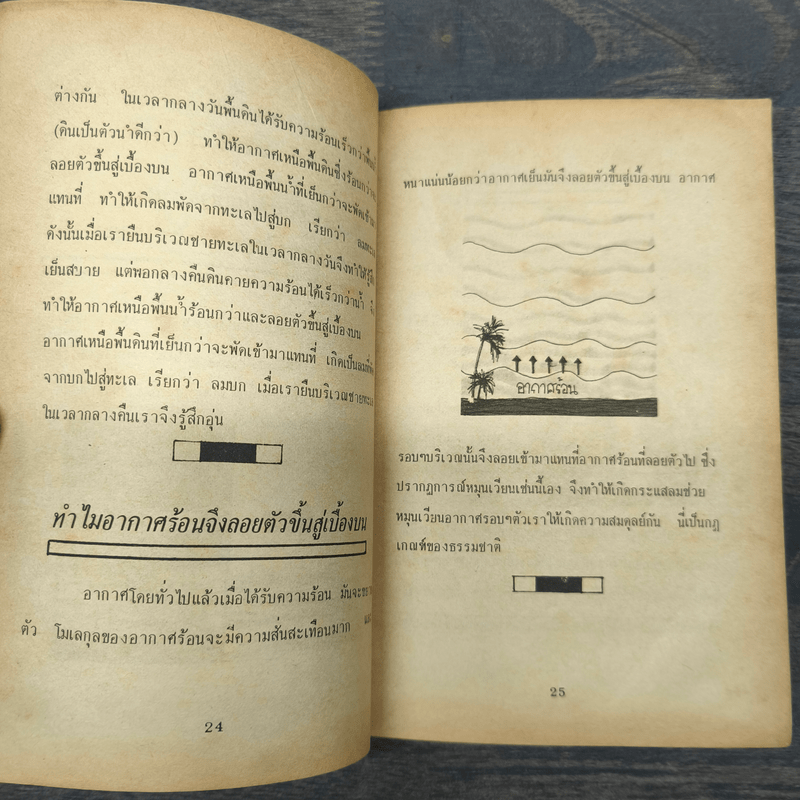 ต่างกัน ในเวลากลางวันพื้นดินได้รับความร้อนเร็วกว่า
(ดินเป็นตัวนำดีกว่า) ทำให้อากาศเหนือพื้นดินซึ่งร้อนกว่า
ลอยตัวขึ้นสู่เบื้องบน อากาศเหนือพื้นน้ำที่เย็นกว่าจะพัดเข้ามา
แทนที่ ทำให้เกิดลมพัดจากทะเลไปสู่บก เรียกว่า ลมทะเล
ดังนั้นเมื่อเรายืนบริเวณชายทะเลในเวลากลางวันจึงทำให้รู้สึก
เย็นสบาย แต่พอกลางคืนดินคายความร้อนได้เร็วกว่าน้ำ
ทำให้อากาศเหนือพื้นน้ำร้อนกว่าและลอยตัวขึ้นสู่เบื้องบน
อากาศเหนือพื้นดินที่เย็นกว่าจะพัดเข้ามาแทนที่ เกิดเป็นลม
จากบกไปสู่ทะเล เรียกว่า ลมบก เมื่อเรายืนบริเวณชายทะเล
ในเวลากลางคืนเราจึงรู้สึกอุ่น
ทำไมอากาศร้อนจึงลอยตัวขึ้นสู่เบื้องบน
อากาศโดยทั่วไปแล้วเมื่อได้รับความร้อน มันจะ
ตัว โมเลกุลของอากาศร้อนจะมีความสั่นสะเทือนมาก
24
หนาแน่นน้อยกว่าอากาศเย็นมันจึงลอยตัวขึ้นสู่เบื้องบน อากาศ
อากาศร้อน
รอบๆบริเวณนั้นจึงลอยเข้ามาแทนที่อากาศร้อนที่ลอยตัวไป ซึ่ง
ปรากฏการณ์หมุนเวียนเช่นนี้เอง จึงทำให้เกิดกระแสลมช่วย
หมุนเวียนอากาศรอบๆตัวเราให้เกิดความสมดุลย์กัน นี่เป็นกฎ
เกณฑ์ของธรรมชาติ
25